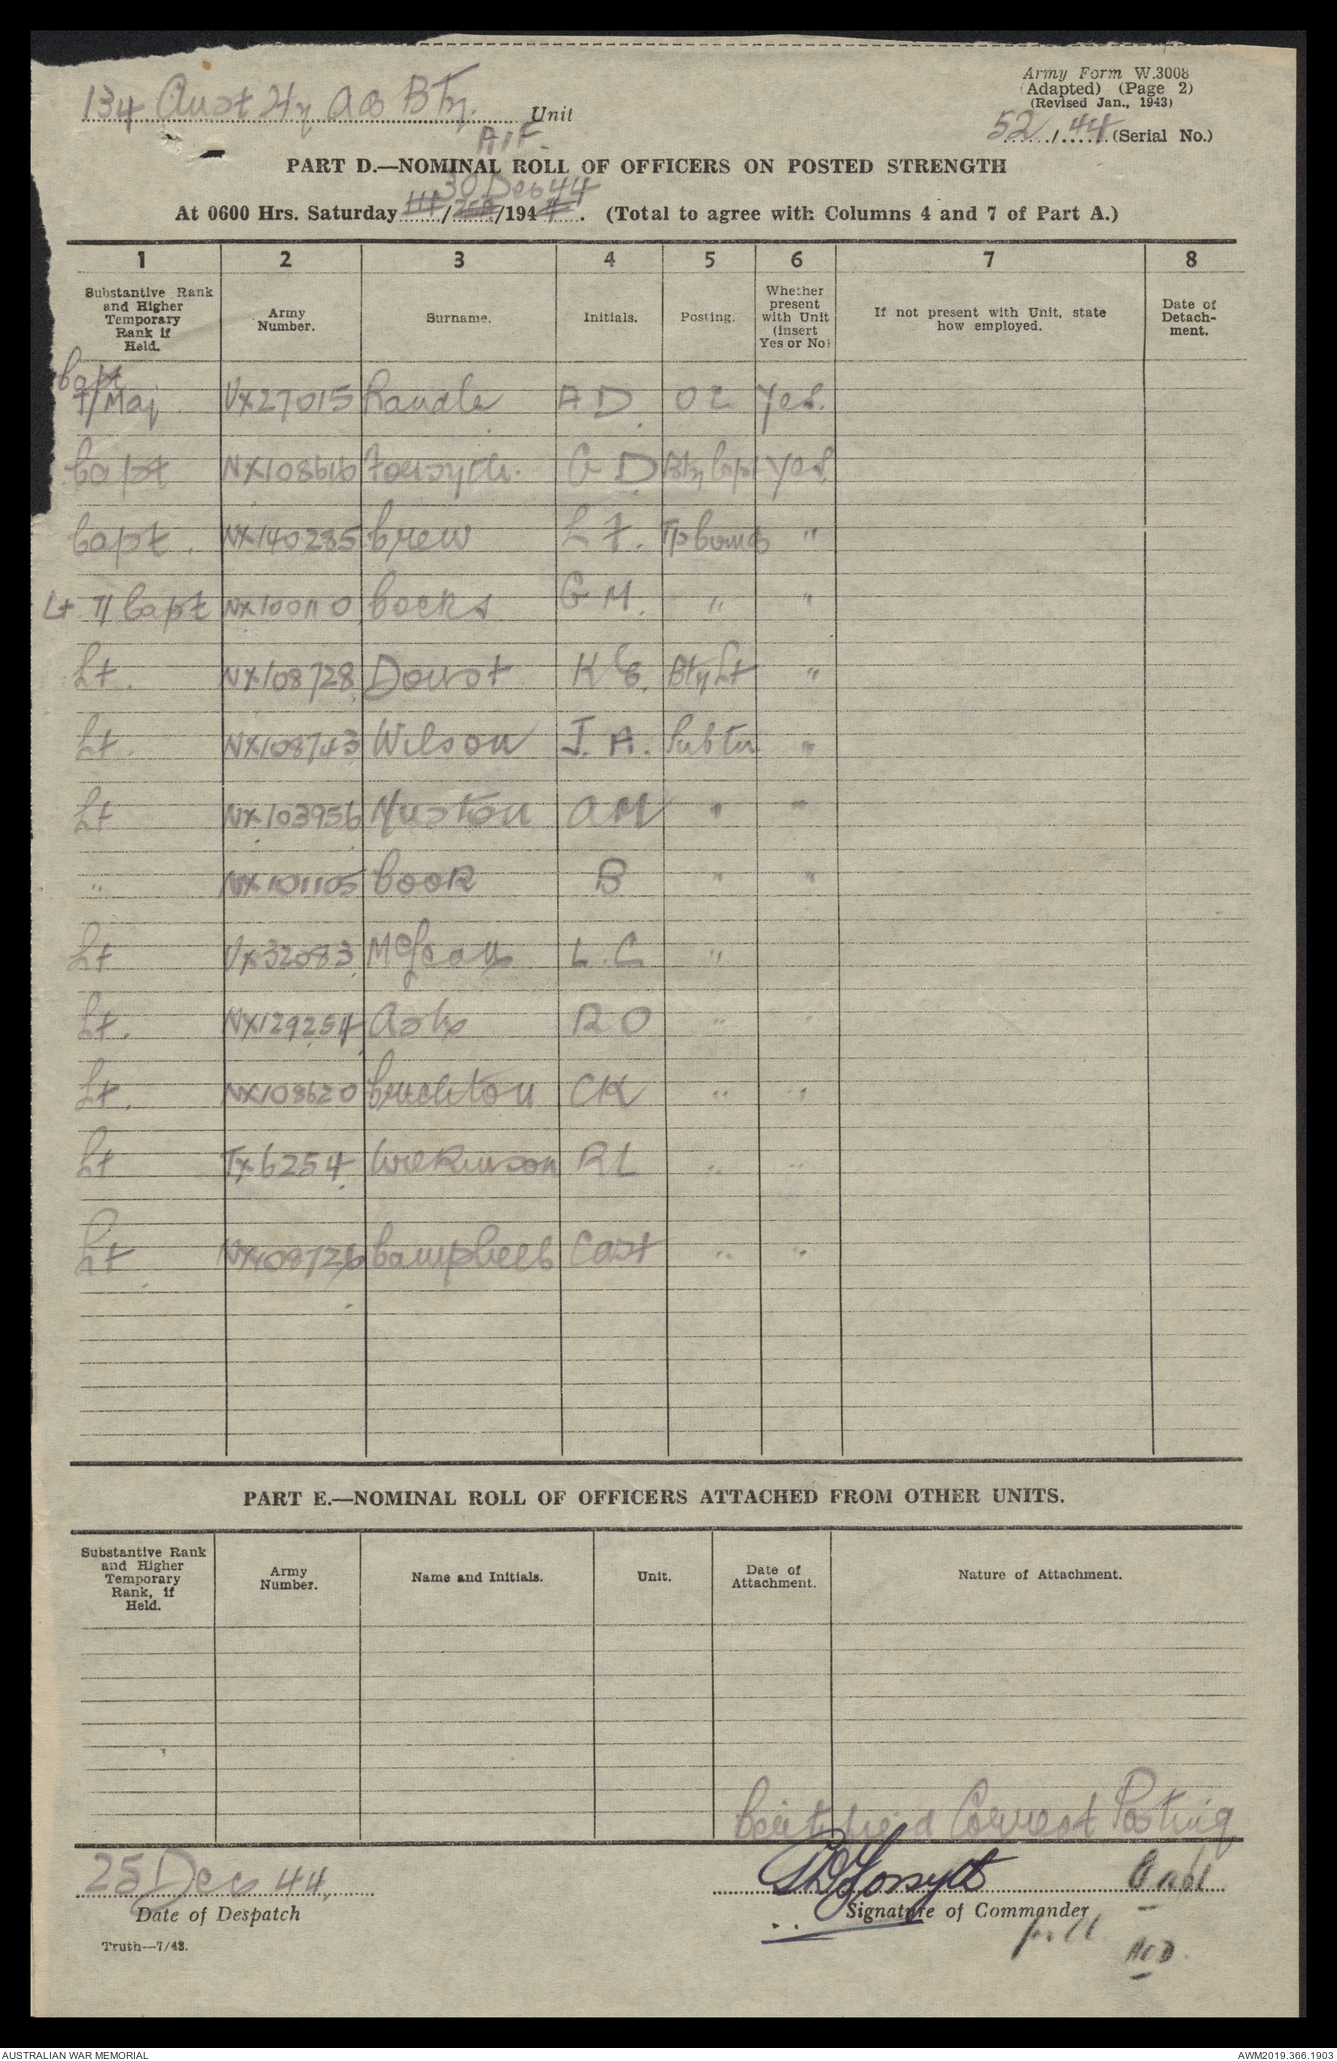 134 Aust Hy AA Bty. Unit
A.I.F.
Army Form W.3008
(Adapted) (Page 2)
(Revised Jan., 1943)
52/44 (Serial No.)
PART D.—NOMINAL ROLL OF OFFICERS ON POSTED STRENGTH
30 Dec 44
At 0600 Hrs. Saturday / /194 . (Total to agree with Columns 4 and 7 of Part A.)
1 2 3 4 5 6 7 8
Substantive Rank and Higher Temporary Rank if Held. Army Number. Surname. Initials. Posting. Whether present with Unit (insert Yes or No) If not present with Unit, state how employed. Date of Detachment.
Capt
T/Maj VX27015 Randle A D. O C Yes.
Capt NX108616 Forsyth. G D Bty Capt Yes
Capt. NX140285 Crew L F. Tp Comd "
Lt T/ Capt NX100110 Cocks G M. " "
Lt. NX108728 Doust K C. Bty Lt "
Lt. NX108743 Wilson J. A. Subtn "
Lt NX103956 Huston A M " "
" NX101105 Cook B " "
Lt VX32083 L. C "
Lt. NX129254 Ash R O " "
Lt. NX108620 C K " "
Lt TX6254 Wilkinson R L " "
Lt NX108726 Campbell C " "
PART E.—NOMINAL ROLL OF OFFICERS ATTACHED FROM OTHER UNITS.
Substantive Rank and Higher Temporary Rank, if Held. Army Number. Name and Initials. Unit. Date of Attachment. Nature of Attachment.
Certified Correct Posting
25 Dec 44. GDForsyth
Date of Despatch Signature of Commander
Truth—7/43.
AUSTRALIAN WAR MEMORIAL AWM2019.366.1903